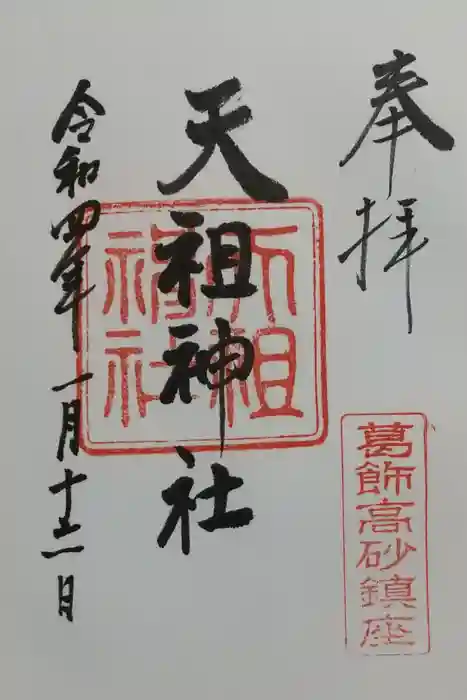 奉拝
葛飾高砂鎮座
天祖神社
天祖
神社
令和四年一月十三日